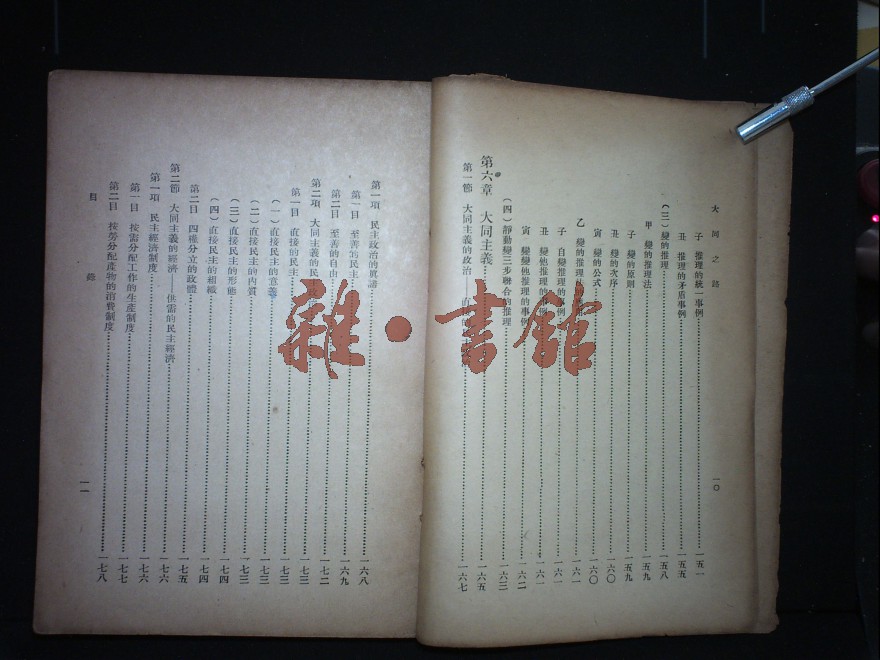 大同之路
子 推理的統一事例……一五一
丑 推理的矛盾事例……一五五
(三)變的推理……一五八
甲 變的推理法……一五九
子 變的原則……一五九
丑 變的次序……一六〇
寅 變的公式……一六〇
乙 變的推理的……一六一
子 自變推理的事例……一六一
丑 變他推理的事例……一六一
寅 變變他推理的事例……一六二
(四)靜動變三步聯合的推理……一六三
第六章 大同主義……一六五
第一節 大同主義的政治——直……一六七
一〇
第一項 民主政治的真諦……一六八
第一目 至善的民主……一六九
第二目 至善的自由……一七二
第二項 大同主義的民主……一七三
第一目 直接的民主……一七三
(一)直接民主的意義……一七三
(二)直接民主的內質……一七三
(三)直接民主的形態……一七四
(四)直接民主的組織……一七四
第二目 四權分立的政體……一七五
第二節 大同主義的經濟——供需的民主經濟……一七六
第一項 民主經濟制度……一七六
第一目 按需分配工作的生產制度……一七七
第二目 按勞分配產物的消費制度……一七八
目錄
一一
雜·書館